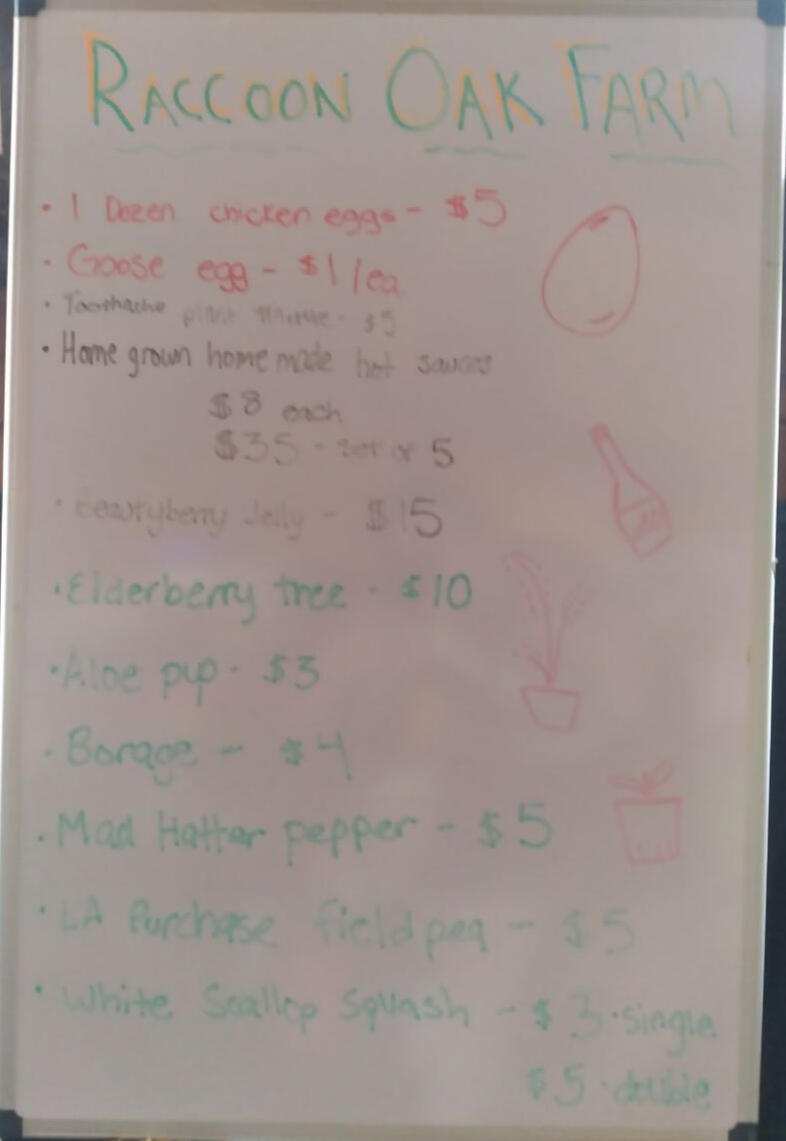 RACCOON OAK FARM
• 1 Dozen chicken eggs - $5
• Goose egg - $1/ea
• Toothache plant - $5
• Home grown home made hot sauces
$8 each
$35 - set of 5
• Beautyberry Jelly - $15
• Elderberry tree - $10
• Aloe pup - $3
• Borage - $4
• Mad Hatter pepper - $5
• LA Purchase field pea - $5
• White Scallop Squash - $3 • single
$5 • double